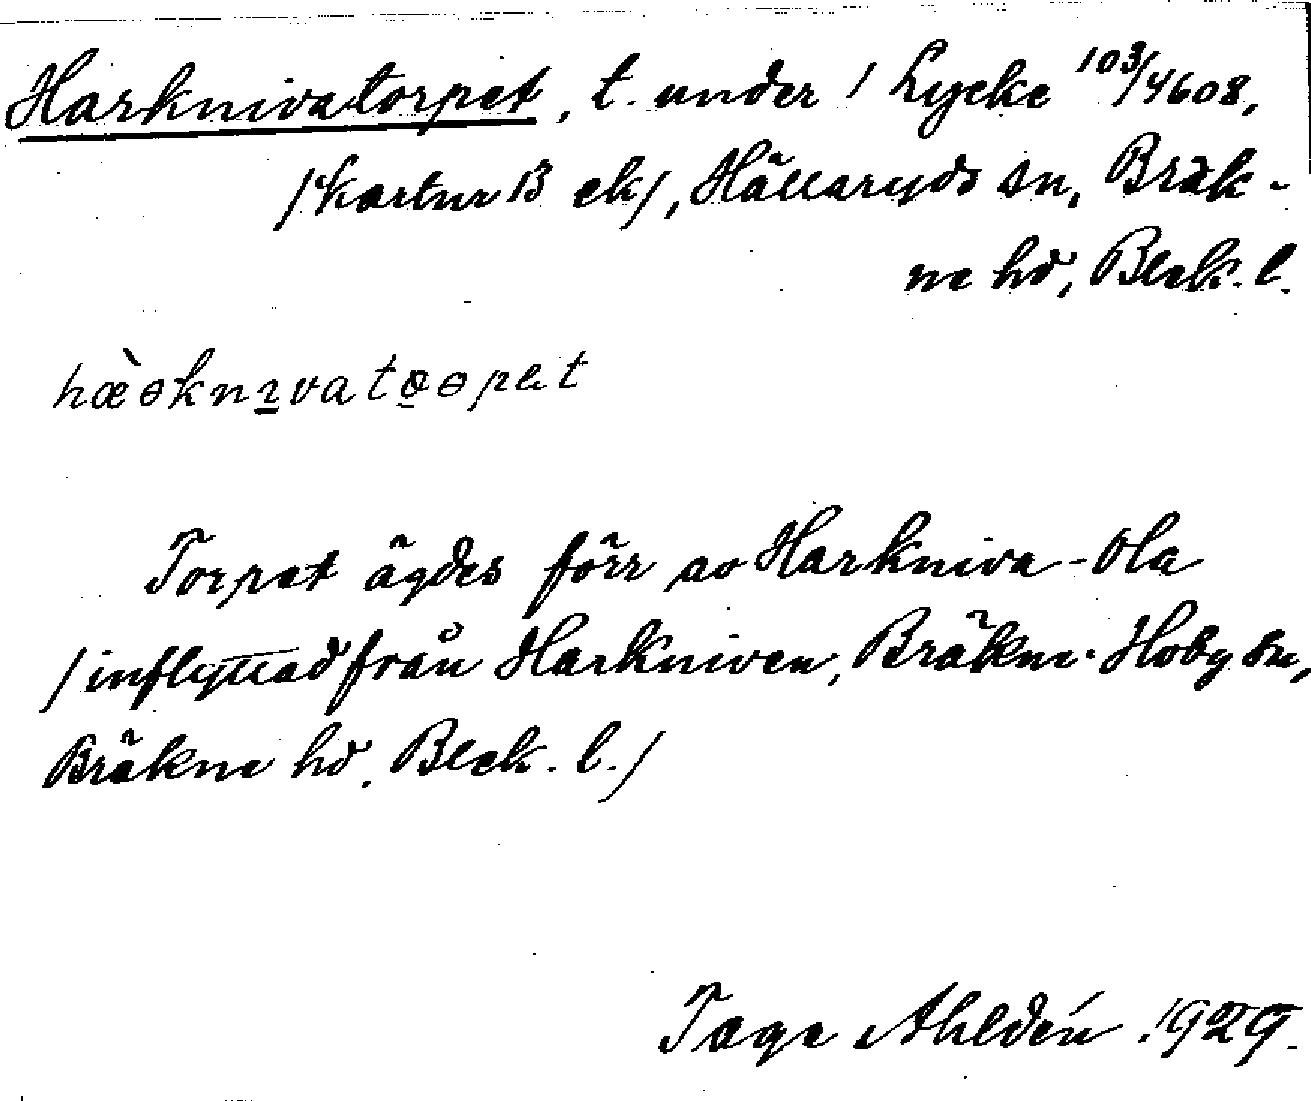 Harknivatorpet, t. under 1 Lycke 103/4608,
/kartur B ek/, Hällaryds sn, Bräk-
ne hd, Blek. l.
hæ̀ɵknɪvato̱ɵpet
Torpet ägdes förr av Harkniva-Ola
/inflyttad från Harkniven, Bräkne-Hoby sn,
Bräkne hd, Blek. l./
Tage Ahldén 1929.